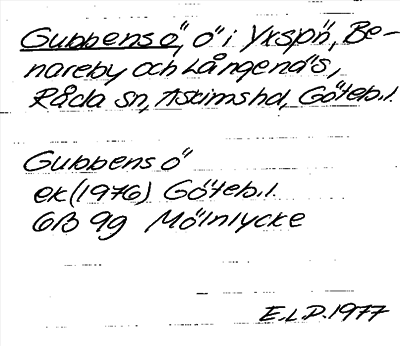 Gubbens ö, ö i Yxsjön, Be-
nareby och Långenäs,
Råda sn, Askims hd, Göteb.l.
Gubbens ö
ek (1976) Göteb.l.
6B 9g Mölnlycke
E.L.P. 1977